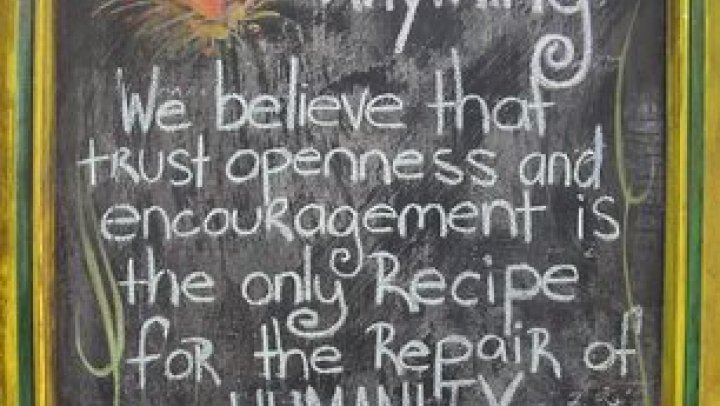 Anything
We believe that
tRUST openness and
encouRagement is
the only Recipe
foR the RepaiR of
HUMANITY